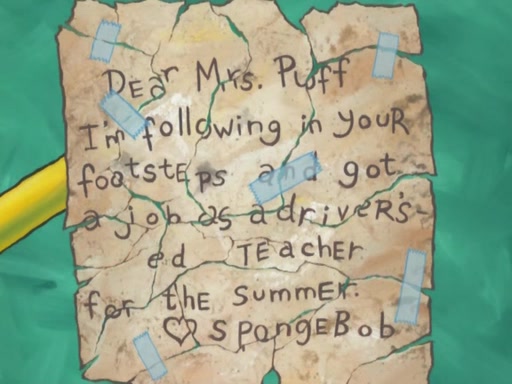 Dear Mrs. Puff
I'm following in your
footsteps and got
a job as a driver's-
ed teacher
for the summer.
♡ SpongeBob